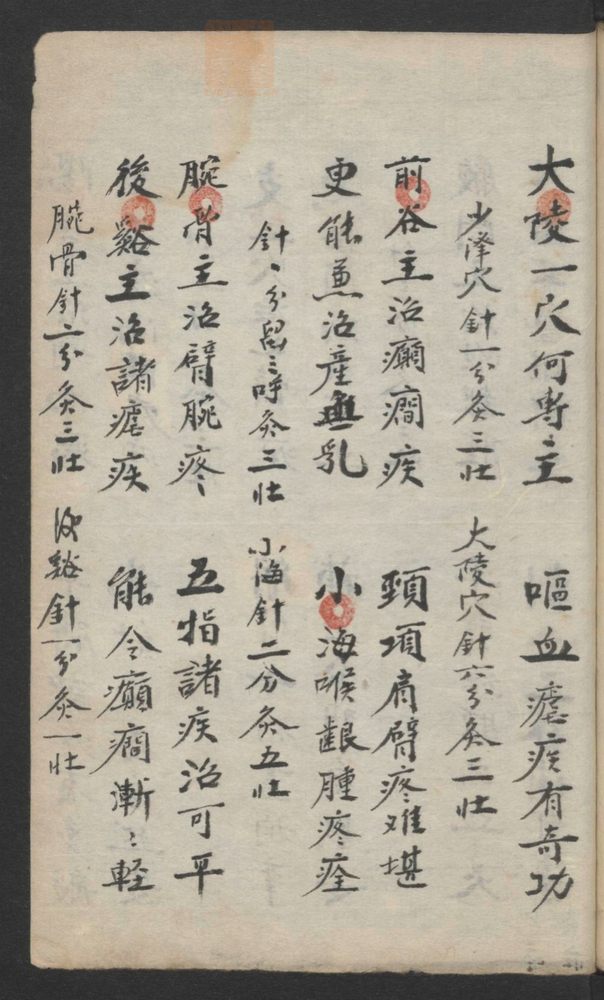 大陵一穴何專主　嘔血瘧疾有奇功
少澤穴針一分灸三壯　大陵穴針六分灸三壯
前谷主治癲癇疾　頸項肩臂疼难堪
更能兼治產無乳　小海喉齦腫疼痊
針一分留三呼灸三壯　小海針二分灸五壯
腕骨主治臂腕疼　五指諸疾治可平
後谿主治諸瘧疾　能令癲癇漸〻軽
腕骨針二分灸三壯　後谿針一分灸一壯